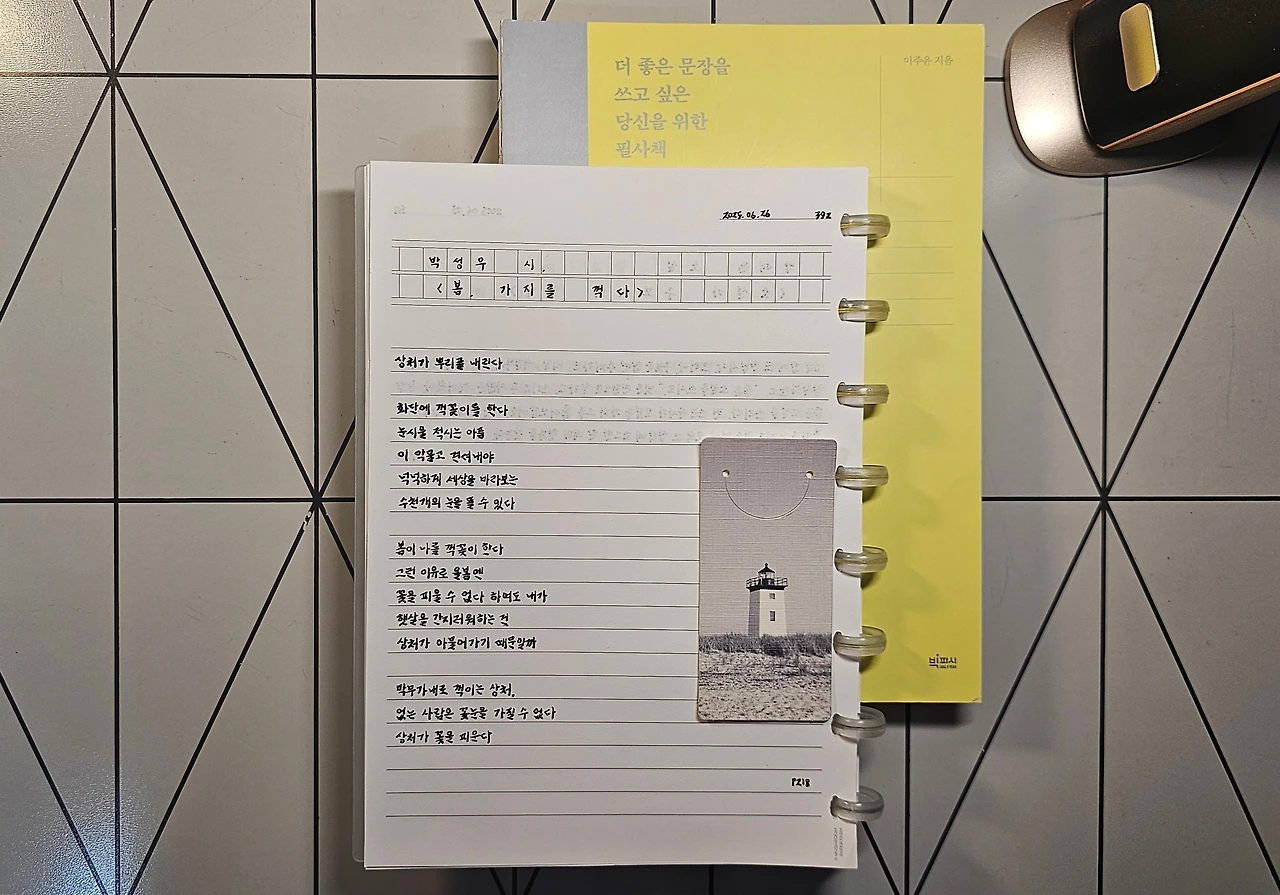 더 좋은 문장을
쓰고 싶은
당신을 위한
필사책
이주윤 지음
2025.06.26
392
박성우 시.
<봄, 가지를 꺽다>
상처가 뿌리를 내린다
화단에 꺽꽂이를 한다
눈시울 적시는 아픔
이 악물고 견뎌내야
넉넉하게 세상을 바라보는
수천개의 눈을 뜰 수 있다
봄이 나를 꺽꽂이 한다
그런 이유로 올봄엔
꽃을 피울 수 없다 하여도 내가
햇살을 간지러워하는 건
상처가 아물어가기 때문일까
막무가내로 꺽이는 상처,
없는 사람은 꽃눈을 가질 수 없다
상처가 꽃을 피운다
P218
빅피시